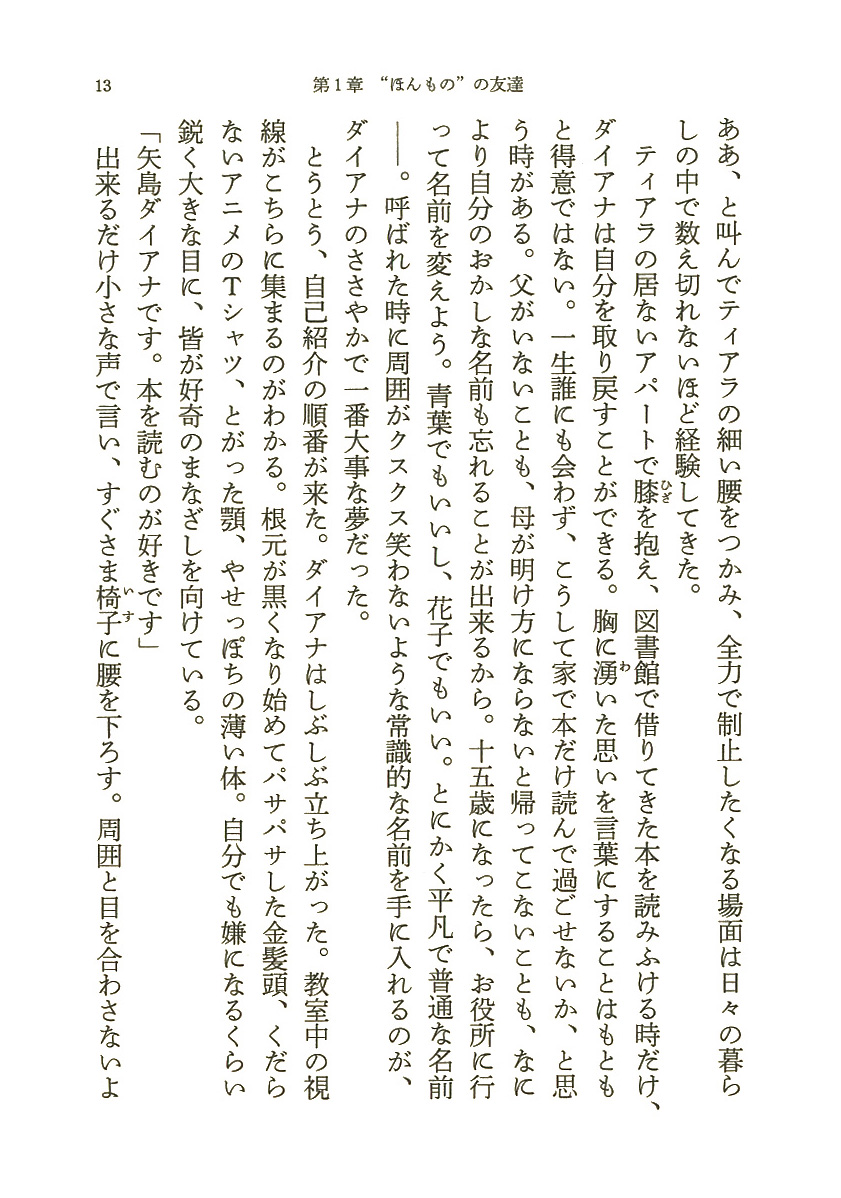 13
第1章 “ほんもの”の友達
ああ、と叫んでティアラの細い腰をつかみ、全力で制止したくなる場面は日々の暮ら
しの中で数え切れないほど経験してきた。
ティアラの居ないアパートで膝を抱え、図書館で借りてきた本を読みふける時だけ、
ダイアナは自分を取り戻すことができる。胸に湧いた思いを言葉にすることはもとも
と得意ではない。一生誰にも会わず、こうして家で本だけ読んで過ごせないか、と思
う時がある。父がいないことも、母が明け方にならないと帰ってこないことも、なに
より自分のおかしな名前も忘れることが出来るから。十五歳になったら、お役所に行
って名前を変えよう。青葉でもいいし、花子でもいい。とにかく平凡で普通な名前
――。呼ばれた時に周囲がクスクス笑わないような常識的な名前を手に入れるのが、
ダイアナのささやかで一番大事な夢だった。
とうとう、自己紹介の順番が来た。ダイアナはしぶしぶ立ち上がった。教室中の視
線がこちらに集まるのがわかる。根元が黒くなり始めてパサパサした金髪頭、くだら
ないアニメのTシャツ、とがった顎、やせっぽちの薄い体。自分でも嫌になるくらい
鋭く大きな目に、皆が好奇のまなざしを向けている。
「矢島ダイアナです。本を読むのが好きです」
出来るだけ小さな声で言い、すぐさま椅子に腰を下ろす。周囲と目を合わさないよ
ひざ
わ
いす